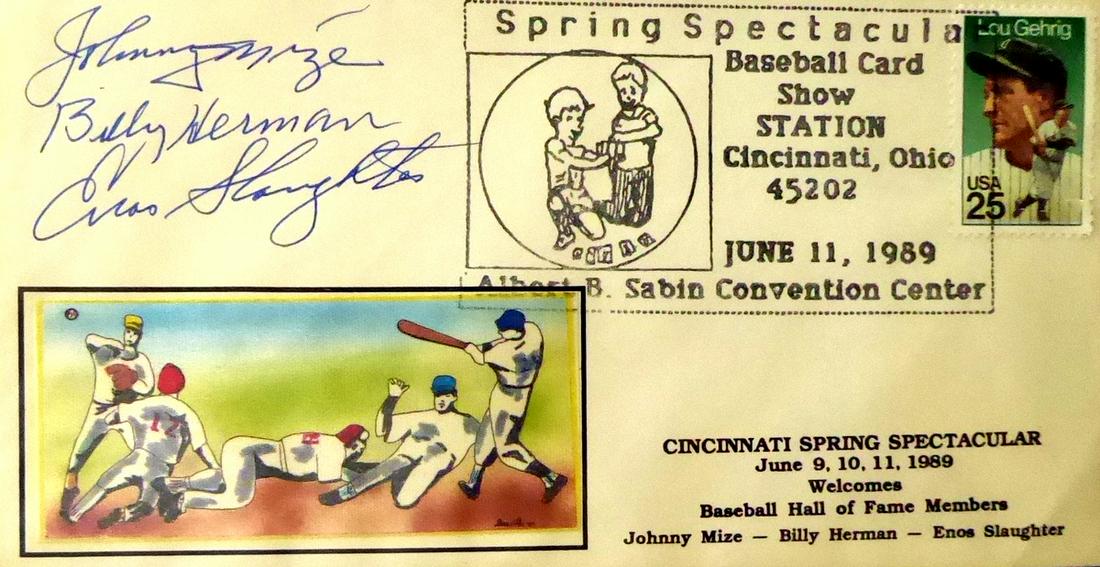 Johnny Mize
Billy Herman
Enos Slaughter
Spring Spectacula
Baseball Card
Show
STATION
Cincinnati, Ohio
45202
JUNE 11, 1989
Albert B. Sabin Convention Center
Lou Gehrig
USA
25
17
CINCINNATI SPRING SPECTACULAR
June 9, 10, 11, 1989
Welcomes
Baseball Hall of Fame Members
Johnny Mize — Billy Herman — Enos Slaughter